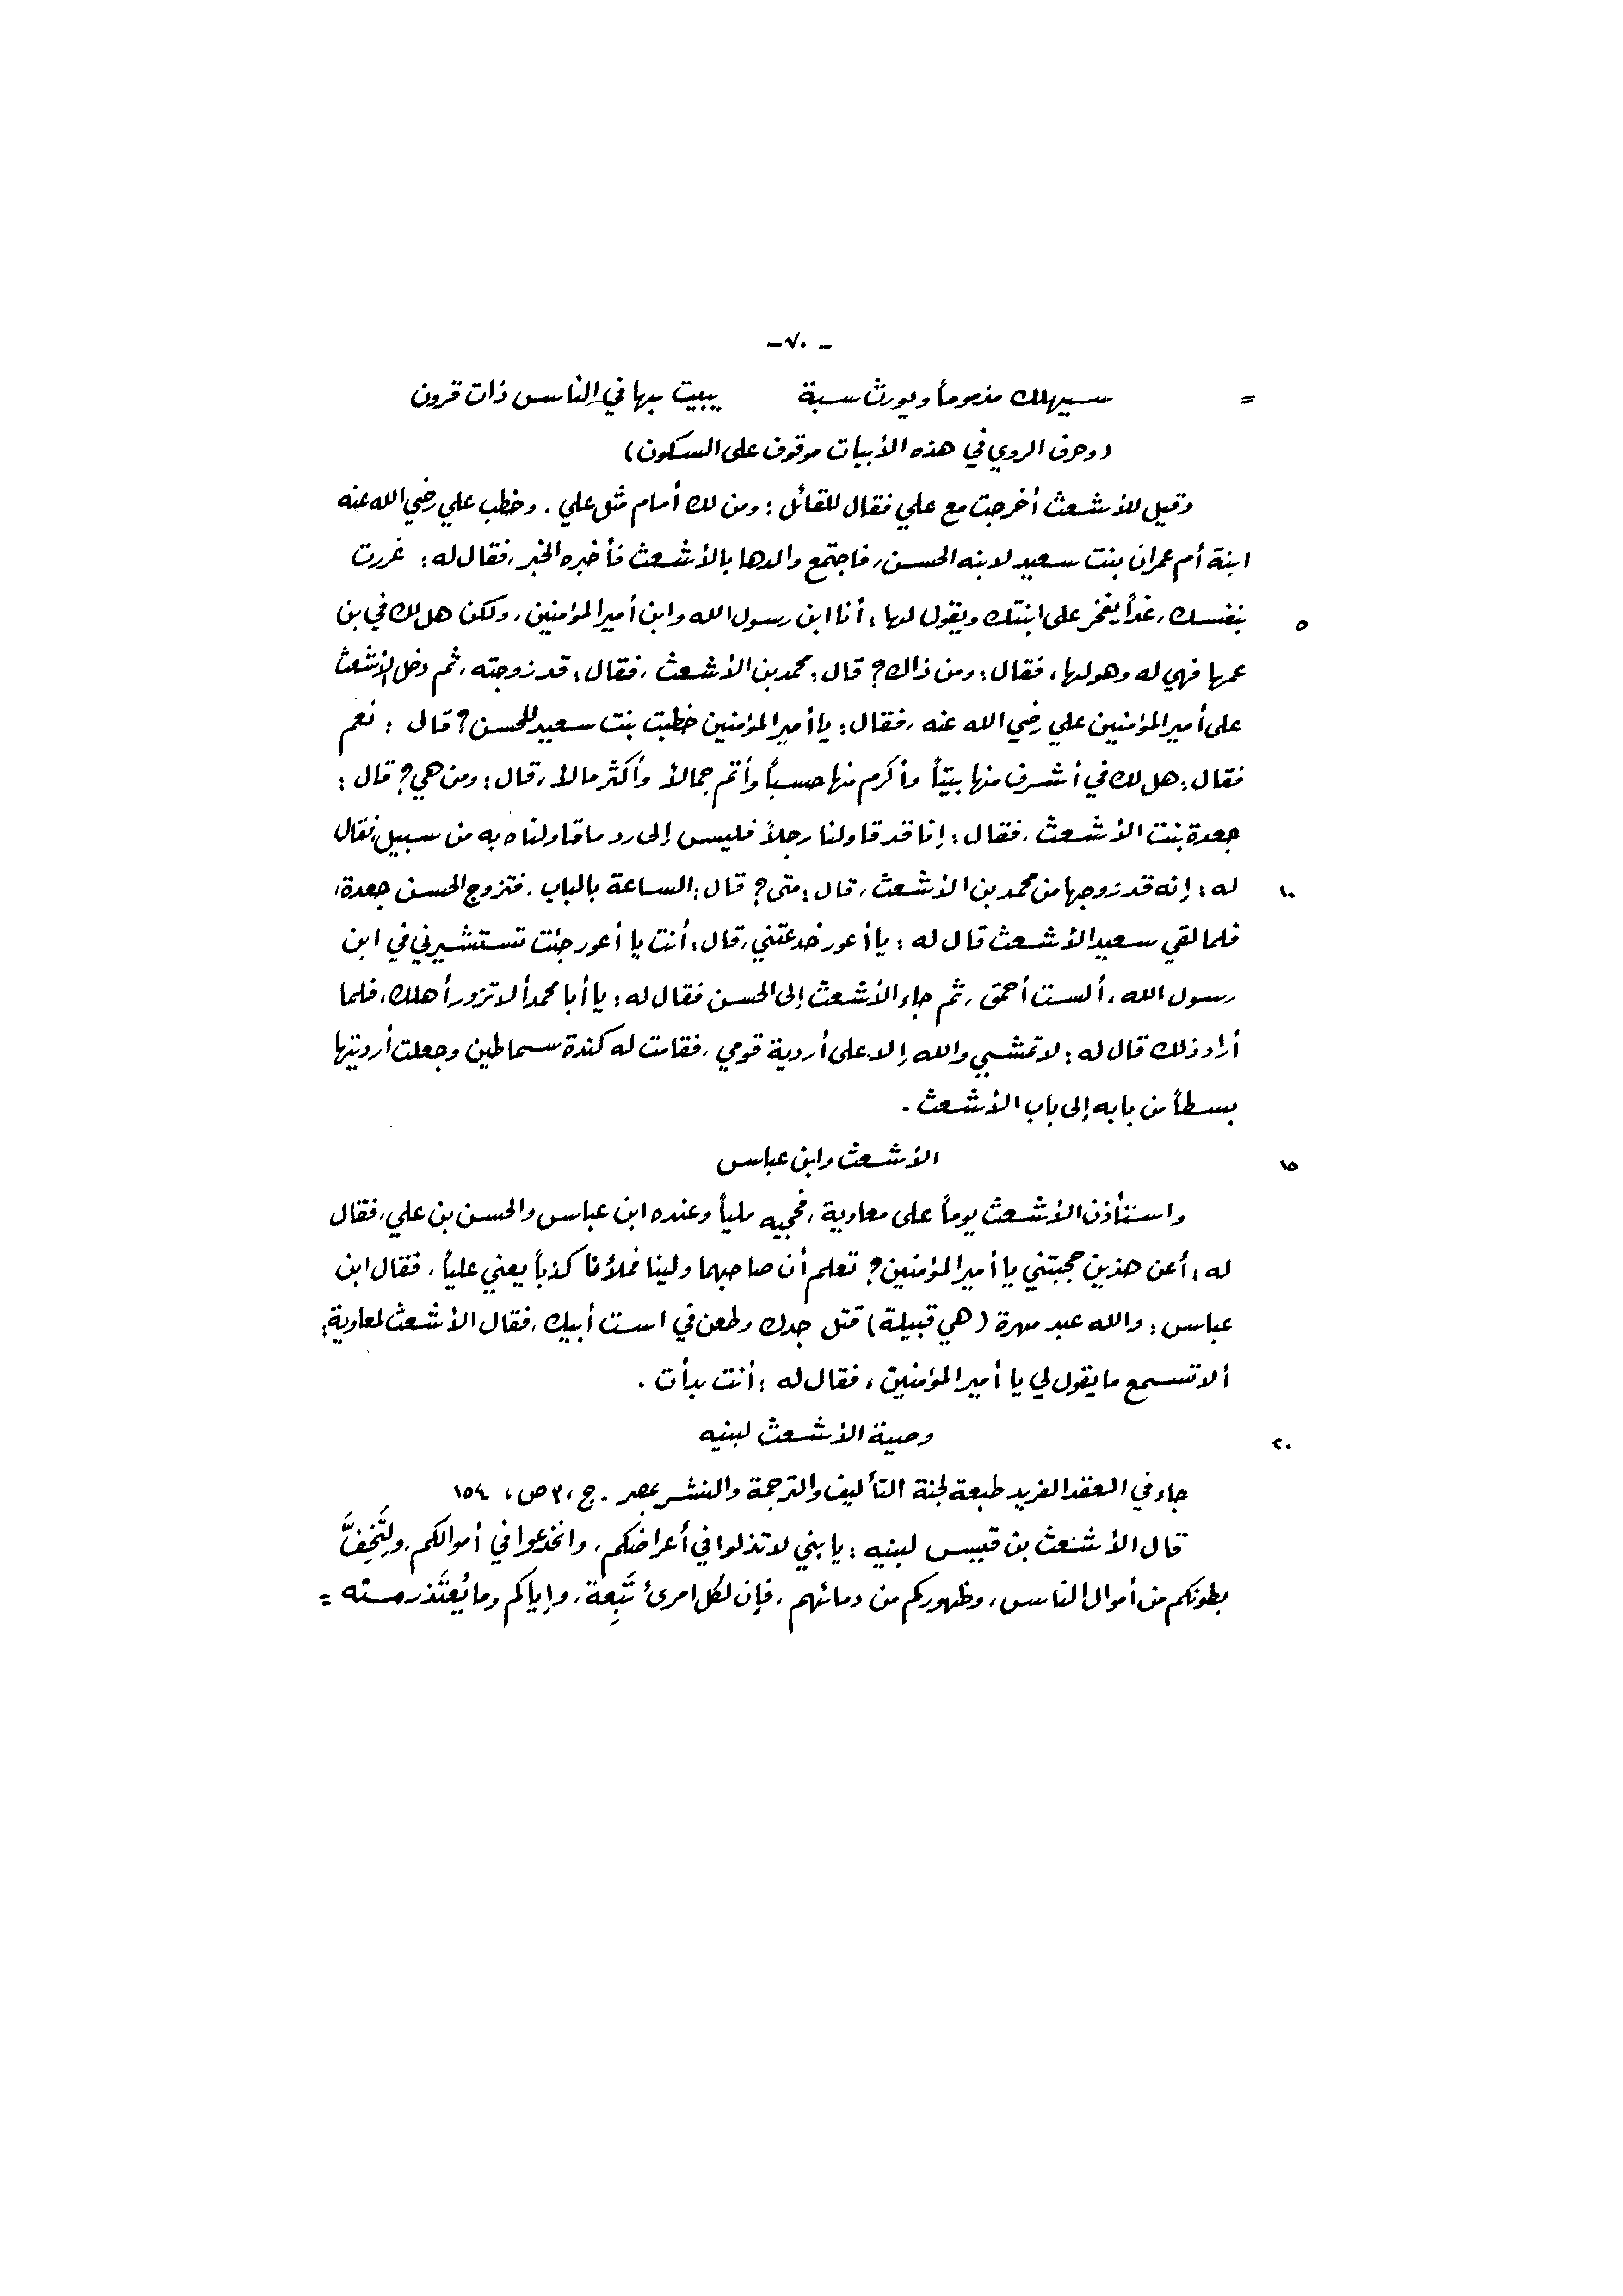 - ٧٠ -
= سيهلك مذموماً ويورث سبة يبيت بها في الناس ذات قرون
(وحرف الروي في هذه الأبيات موقوف على السكون)
وقيل للأشعث أخرجت مع علي فقال للقائل : ومن لك أمام مثل علي . وخطب علي رضي الله عنه
ابنة أم عمران بنت سعيد لابنه الحسن، فاجتمع والدها بالأشعث فأخبره الخبر، فقال له : غررت
٥ بنفسك، غداً يفخر على ابنتك ويقول لها : أنا ابن رسول الله وابن أمير المؤمنين، ولكن هل لك في بن
عمها فهي له وهو لها، فقال : ومن ذاك؟ قال : محمد بن الأشعث، فقال : قد زوجته، ثم دخل الأشعث
على أمير المؤمنين علي رضي الله عنه، فقال : يا أمير المؤمنين خطبت بنت سعيد للحسن؟ قال : نعم
فقال : هل لك في أشرف منها بيتاً وأكرم منها حسباً وأتم جمالاً وأكثر مالاً، قال : ومن هي؟ قال :
جعدة بنت الأشعث، فقال : إنا قد قاولنا رجلاً فليس إلى رد ما قاولناه به من سبيل، فقال
١٠ له : إنه قد زوجها من محمد بن الأشعث، قال : متى؟ قال : الساعة بالباب، فتزوج الحسن جعدة،
فلما لقي سعيد الأشعث قال له : يا أعور خدعتني، قال : أنت يا أعور جئت تستشيرني في ابن
رسول الله، ألست أحمق، ثم جاء الأشعث إلى الحسن فقال له : يا أبا محمد ألا تزور أهلك، فلما
أراد ذلك قال له : لا تمشي والله إلا على أردية قومي، فقامت له كندة سماطين وجعلت أرديتها
بسطاً من بابه إلى باب الأشعث .
١٥ الأشعث وابن عباس
واستأذن الأشعث يوماً على معاوية، فحجبه ملياً وعنده ابن عباس والحسن بن علي، فقال
له : أعن هذين حجبتني يا أمير المؤمنين؟ تعلم أن صاحبهما ولينا فملأنا كذباً يعني علياً، فقال ابن
عباس : والله عبد مهرة (هي قبيلة) قتل جدك وطعن في است أبيك، فقال الأشعث لمعاوية :
ألا تسمع ما يقول لي يا أمير المؤمنين، فقال له : أنت بدأت .
٢٠ وصية الأشعث لبنيه
جاء في العقد الفريد طبعة لجنة التأليف والترجمة والنشر بمصر . ج، ٣ ص، ١٥٤
قال الأشعث بن قيس لبنيه : يا بني لا تذلوا في أعراضكم، وانخدعوا في أموالكم، ولتَخِفَّ
بطونكم من أموال الناس، وظهوركم من دمائهم، فإن لكل امرئ تَبِعة، وإياكم وما يُعتَذر منه =